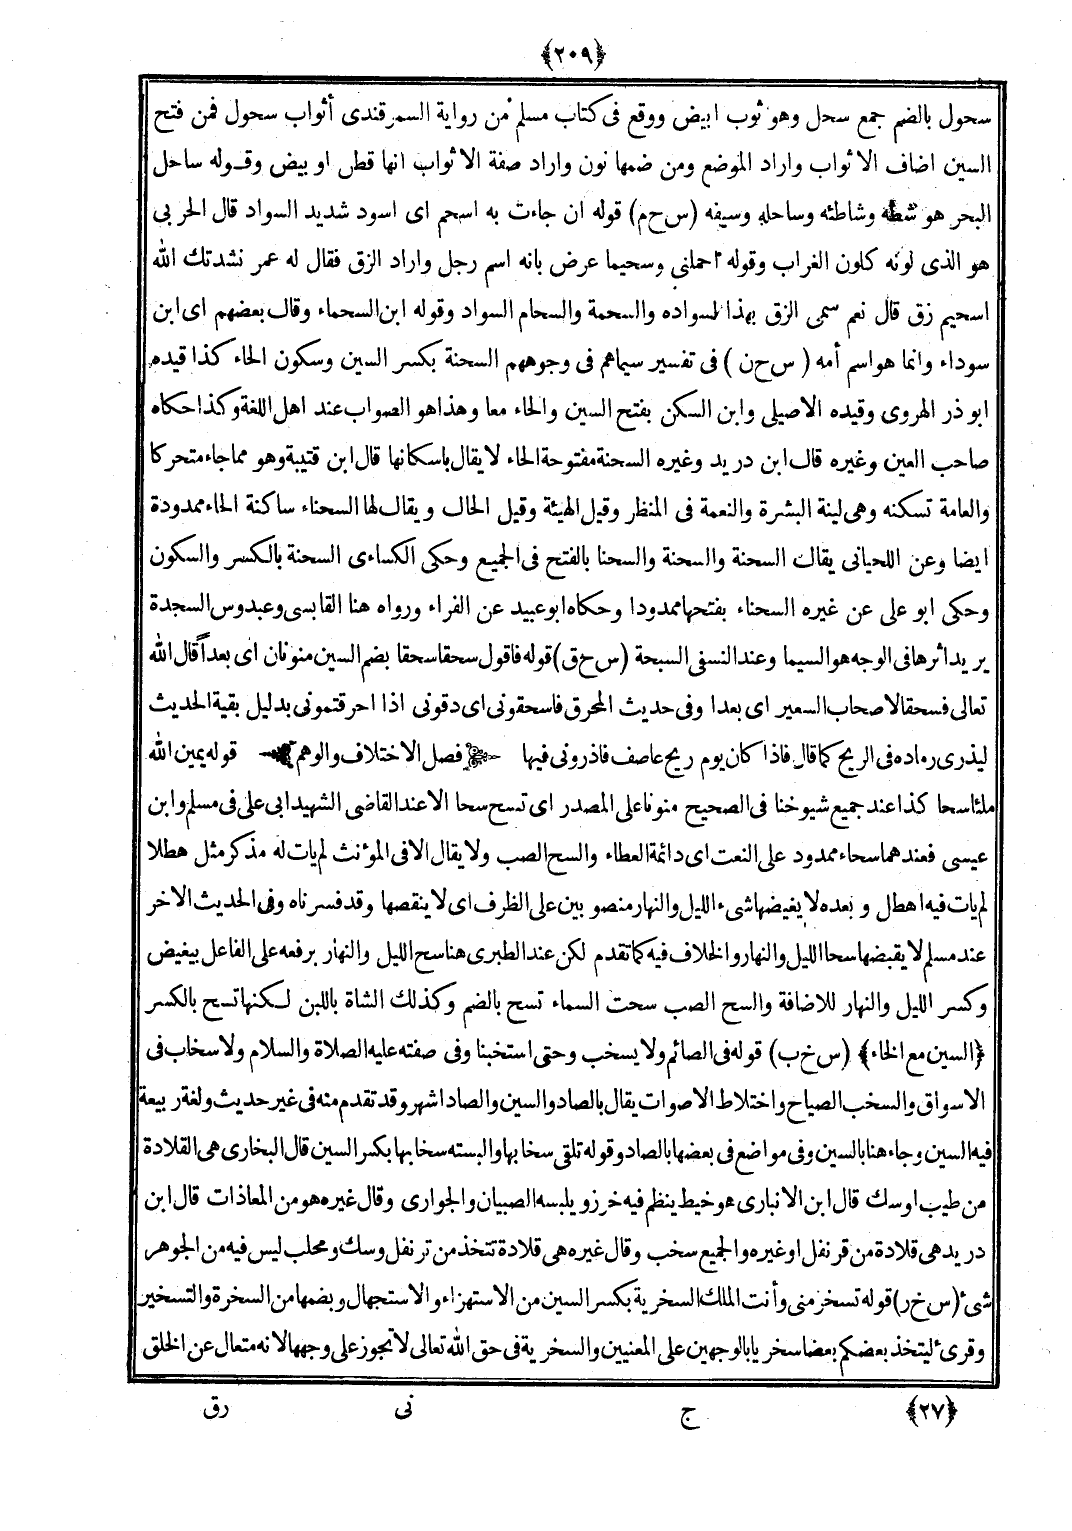 ﴿٢٠٩﴾
سحول بالضم جمع سحل وهو ثوب ابيض ووقع فى كتاب مسلم من رواية السمرقندى أثواب سحول فمن فتح
السين اضاف الاثواب واراد الموضع ومن ضمها نون واراد صفة الاثواب انها قطن او بيض وقوله ساحل
البحر هو شطه وشاطئه وساحله وسيفه (س ح م) قوله ان جاءت به اسحم اى اسود شديد السواد قال الحربى
هو الذى لونه كلون الغراب وقوله احملنى وسحيما عرض بانه اسم رجل واراد الزق فقال له عمر نشدتك الله
اسحيم زق قال نعم سمى الزق بهذا لسواده والسحمة والسحام السواد وقوله ابن السحماء وقال بعضهم اى ابن
سوداء وانما هو اسم أمه ( س ح ن ) فى تفسير سيماهم فى وجوههم السحنة بكسر السين وسكون الحاء كذا قيده
ابو ذر الهروى وقيده الاصيلى وابن السكن بفتح السين والحاء معا وهذا هو الصواب عند اهل اللغة وكذا حكاه
صاحب العين وغيره قال ابن دريد وغيره السحنة مفتوحة الحاء لا يقال باسكانها قال ابن قتيبة وهو مما جاء متحركا
والعامة تسكنه وهى لينة البشرة والنعمة فى المنظر وقيل الهيئة وقيل الحال ويقال لها السحناء ساكنة الحاء ممدودة
ايضا وعن اللحيانى يقال السحنة والسحنة والسحنا بالفتح فى الجميع وحكى الكساءى السحنة بالكسر والسكون
وحكى ابو على عن غيره السحناء بفتحها ممدودا وحكاه ابو عبيد عن الفراء ورواه هنا القابسى وعبدوس السجدة
يريد اثرها فى الوجه هو السيما وعند النسفى السبحة (س ح ق) قوله فاقول سحقا سحقا بضم السين منونان اى بعداً قال الله
تعالى فسحقا لاصحاب السعير اى بعدا وفى حديث المحرق فاسحقونى اى دقونى اذا احرقتمونى بدليل بقية الحديث
ليذرى رماده فى الريح كما قال فاذا كان يوم ريح عاصف فاذرونى فيها فصل الاختلاف والوهم قوله يمين الله
ملئا سحا كذا عند جميع شيوخنا فى الصحيح منونا على المصدر اى تسح سحا الا عند القاضى الشهيد ابى على فى مسلم وابن
عيسى فعندهما سحاء ممدود على النعت اى دائمة العطاء والسح الصب ولا يقال الا فى المؤنث لم يات له مذكر مثل هطلا
لم يات فيه اهطل وبعده لا يغيضها شىء الليل والنهار منصوبين على الظرف اى لا ينقصها وقد فسرناه وفى الحديث الاخر
عند مسلم لا يقبضها سحا الليل والنهار والخلاف فيه كما تقدم لكن عند الطبرى هنا سح الليل والنهار برفعه على الفاعل بيغيض
وكسر الليل والنهار للاضافة والسح الصب سحت السماء تسح بالضم وكذلك الشاة باللبن لكنها تسح بالكسر
﴿السين مع الخاء﴾ (س خ ب) قوله فى الصائم ولا يسخب وحتى استخبنا وفى صفته عليه الصلاة والسلام ولا سخاب فى
الاسواق والسخب الصياح واختلاط الاصوات يقال بالصاد والسين والصاد اشهر وقد تقدم منه فى غير حديث ولغة ربيعة
فيه السين وجاء هنا بالسين وفى مواضع فى بعضها بالصاد وقوله تلقى سخابها والبسته سخابها بكسر السين قال البخارى هى القلادة
من طيب او سك قال ابن الانبارى هو خيط ينظم فيه خرز ويلبسه الصبيان والجوارى وقال غيره هو من المعاذات قال ابن
دريد هى قلادة من قرنفل او غيره والجميع سخب وقال غيره هى قلادة تتخذ من قرنفل وسك ومحلب ليس فيه من الجوهر
شىء (س خ ر) قوله تسخر منى وأنت الملك السخرية بكسر السين من الاستهزاء والاستجهال وبضمها من السخرة والتسخير
وقرىء ليتخذ بعضكم بعضا سخريا بالوجهين على المعنيين والسخرية فى حق الله تعالى لا تجوز على وجهها لانه متعال عن الخلق
﴿٢٧﴾ ج نى رق